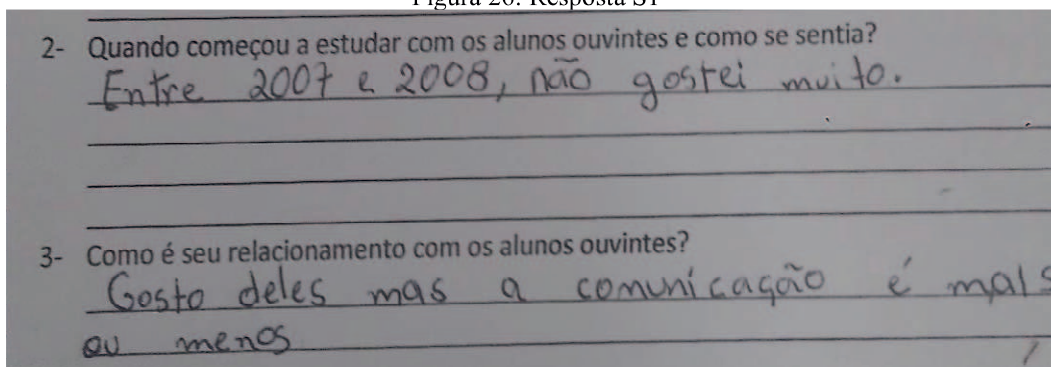 Figura 20: Resposta S1
2- Quando começou a estudar com os alunos ouvintes e como se sentia?
Entre 2007 e 2008, não gostei muito.
3- Como é seu relacionamento com os alunos ouvintes?
Gosto deles mas a comunicação é mais
ou menos